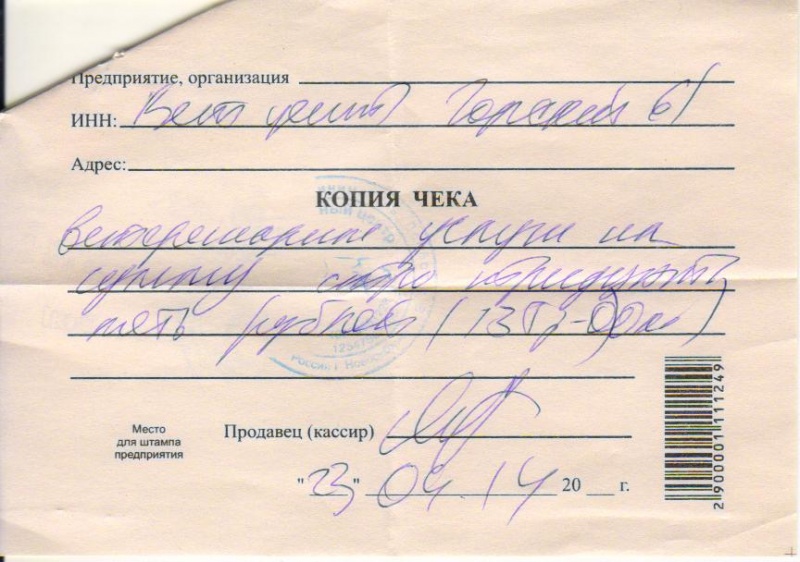 Предприятие, организация
ИНН: Вет центр Горский 61
Адрес:
КОПИЯ ЧЕКА
ветеринарные услуги на
сумму сто тридцать
пять рублей (135-00)
Место
для штампа
предприятия
Продавец (кассир)
"23" 04.14 20 __ г.
2 900001 111249